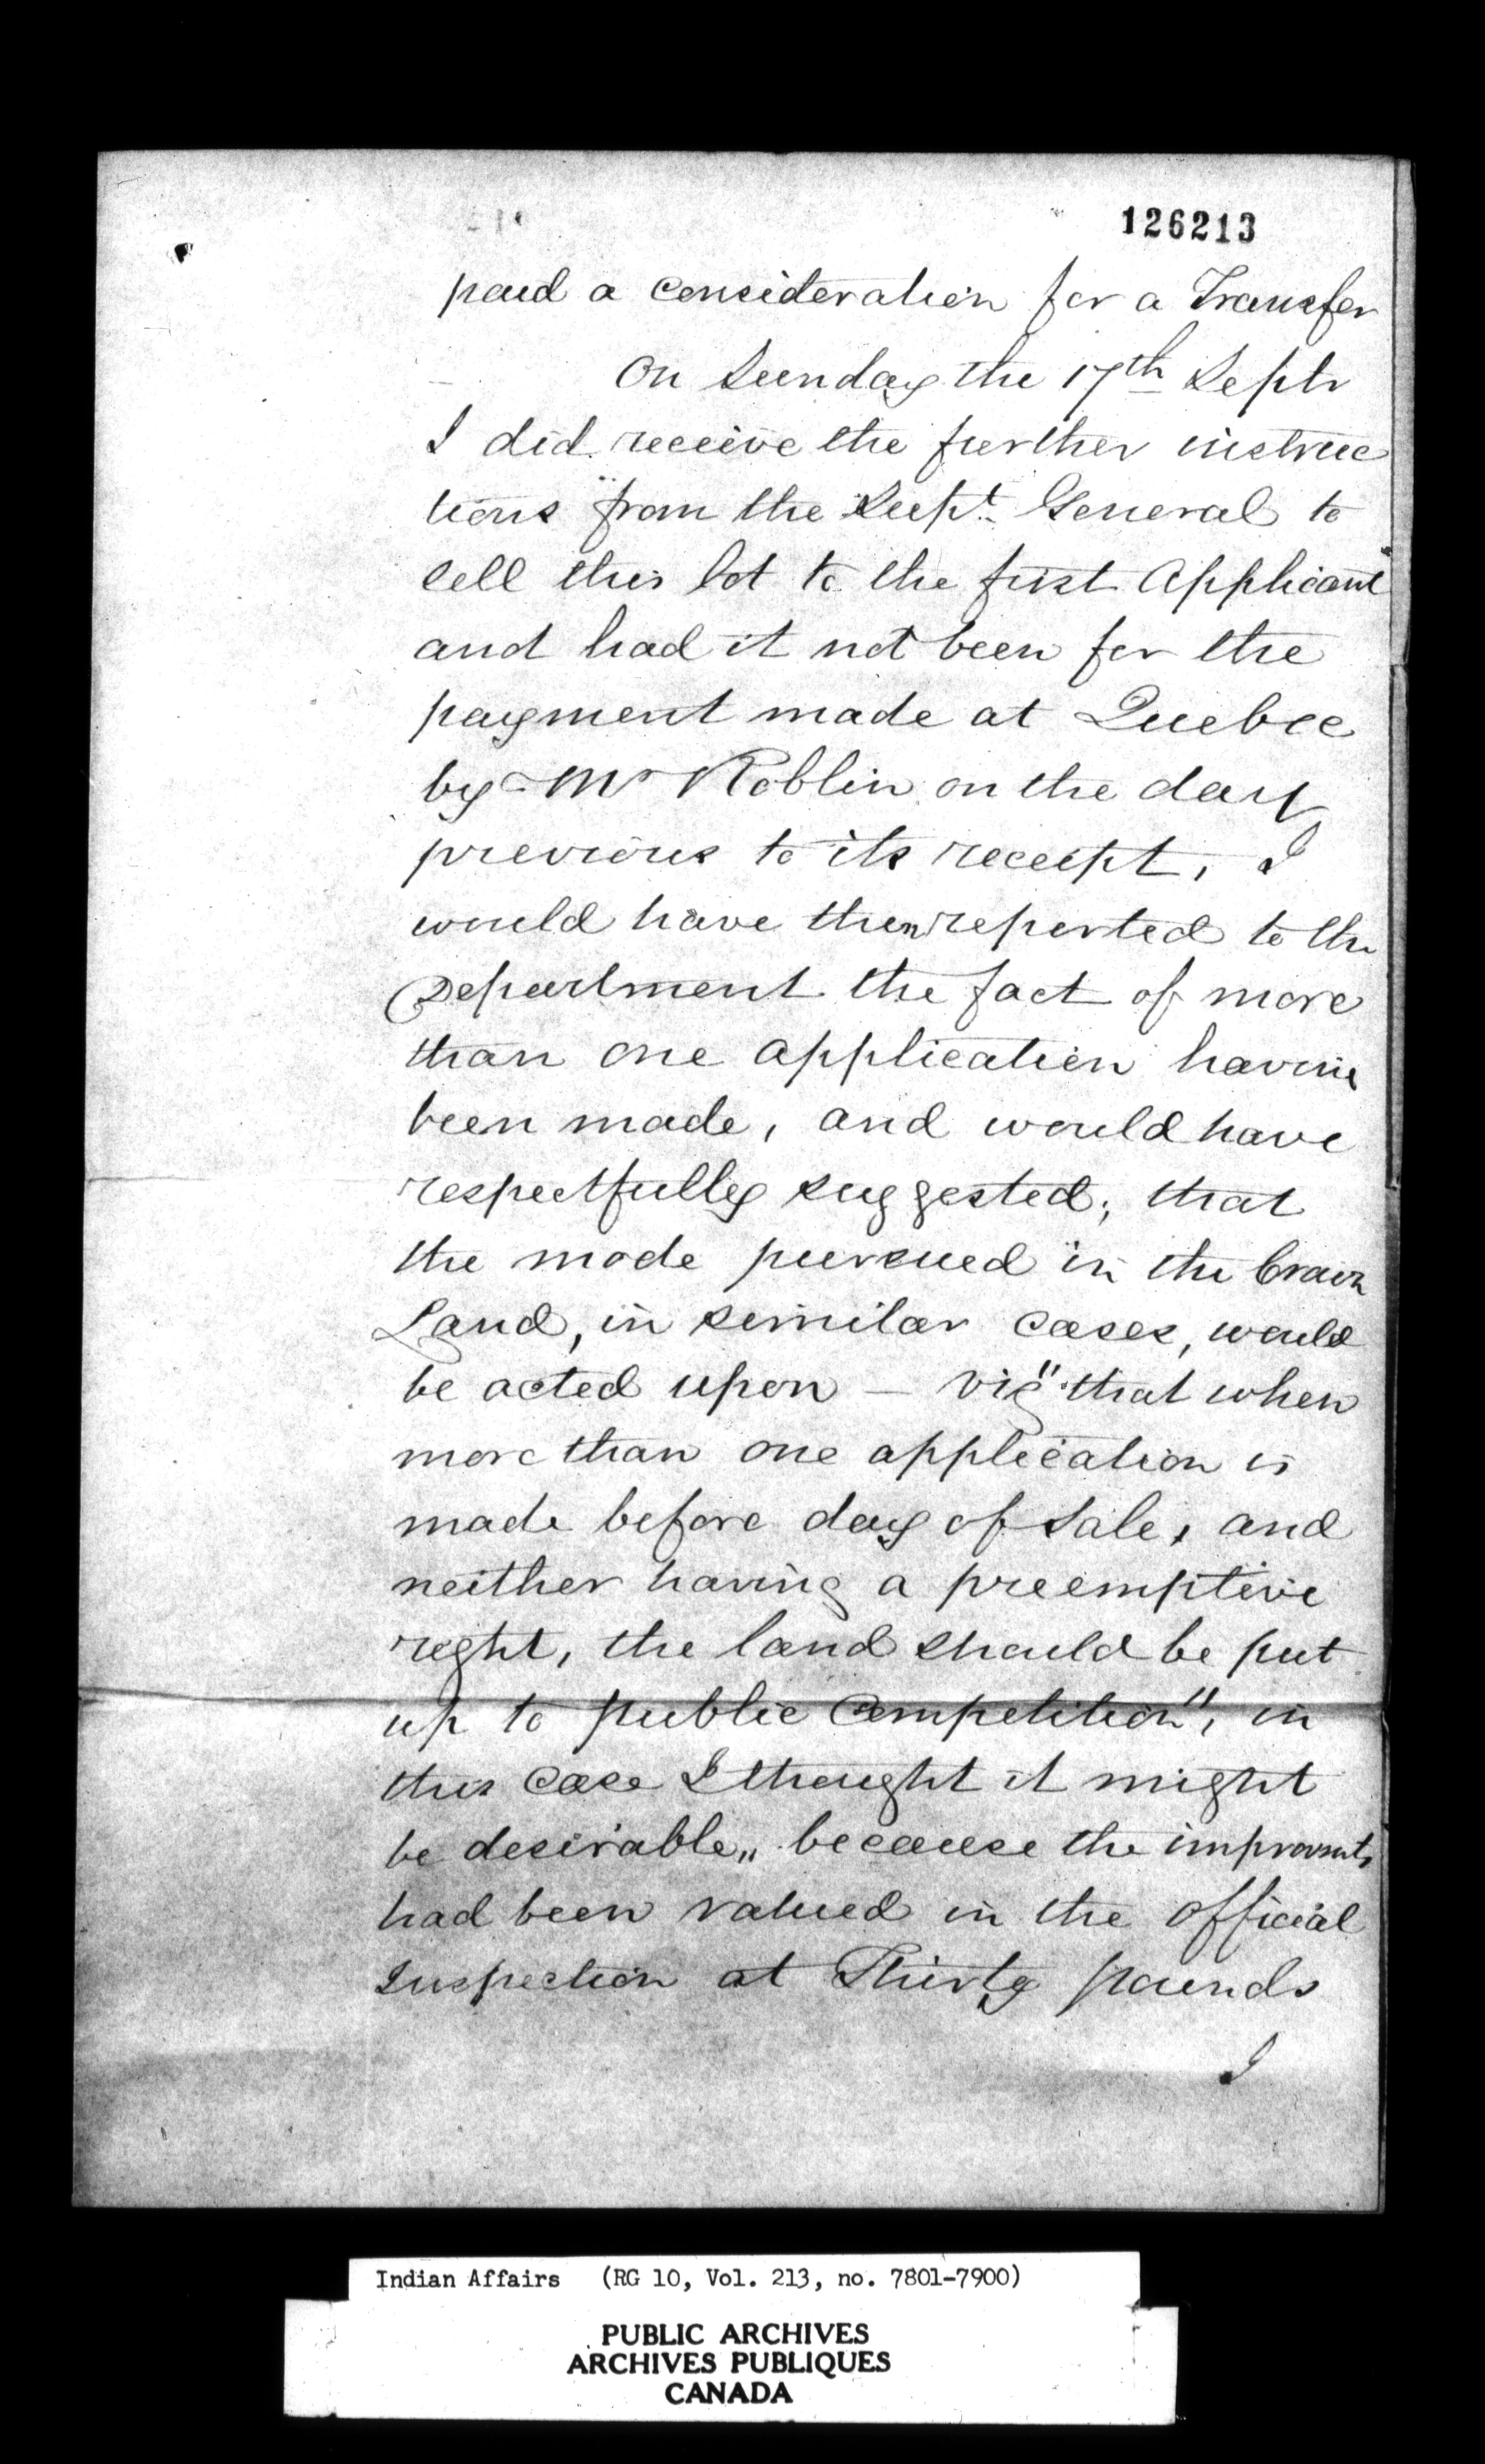 126213
paid a consideration for a Transfer
On Sunday the 17th Septr
I did receive the further instruc
tions "from the Supt. General to
sell this lot to the first Applicant"
and had it not been for the
payment made at Quebec
by Mr Roblin on the day
previous to its receipt, I
would have then reported to the
Department the fact of more
than one application having
been made, and would have
respectfully suggested, that
the mode pursued in the Crown
Land, in similar cases, would
be acted upon — viz "that when
more than one application is
made before day of Sale, and
neither having a preemptive
right, the land should be put
up to public Competition", in
this case I thought it might
be desirable,, because the improvmts
had been valued in the official
Inspection at Thirty pounds
I
Indian Affairs (RG 10, Vol. 213, no. 7801-7900)
PUBLIC ARCHIVES
ARCHIVES PUBLIQUES
CANADA